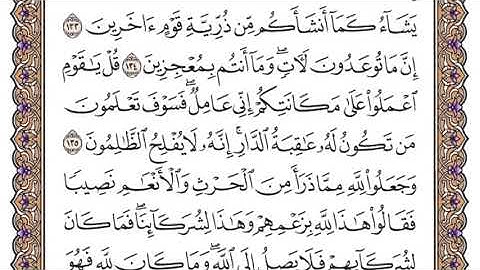 يَشَآءُ كَمَآ أَنشَأَكُم مِّن ذُرِّيَّةِ قَوۡمٍ ءَاخَرِينَ ١٣٣
إِنَّ مَا تُوعَدُونَ لَأٓتٖۖ وَمَآ أَنتُم بِمُعۡجِزِينَ ١٣٤ قُلۡ يَٰقَوۡمِ
ٱعۡمَلُواْ عَلَىٰ مَكَانَتِكُمۡ إِنِّي عَامِلٞۖ فَسَوۡفَ تَعۡلَمُونَ
مَن تَكُونُ لَهُۥ عَٰقِبَةُ ٱلدَّارِۚ إِنَّهُۥ لَا يُفۡلِحُ ٱلظَّٰلِمُونَ ١٣٥
وَجَعَلُواْ لِلَّهِ مِمَّا ذَرَأَ مِنَ ٱلۡحَرۡثِ وَٱلۡأَنۡعَٰمِ نَصِيبٗا
فَقَالُواْ هَٰذَا لِلَّهِ بِزَعۡمِهِمۡ وَهَٰذَا لِشُرَكَآئِنَاۖ فَمَا كَانَ
لِشُرَكَآئِهِمۡ فَلَا يَصِلُ إِلَى ٱللَّهِۖ وَمَا كَانَ لِلَّهِ فَهُوَ